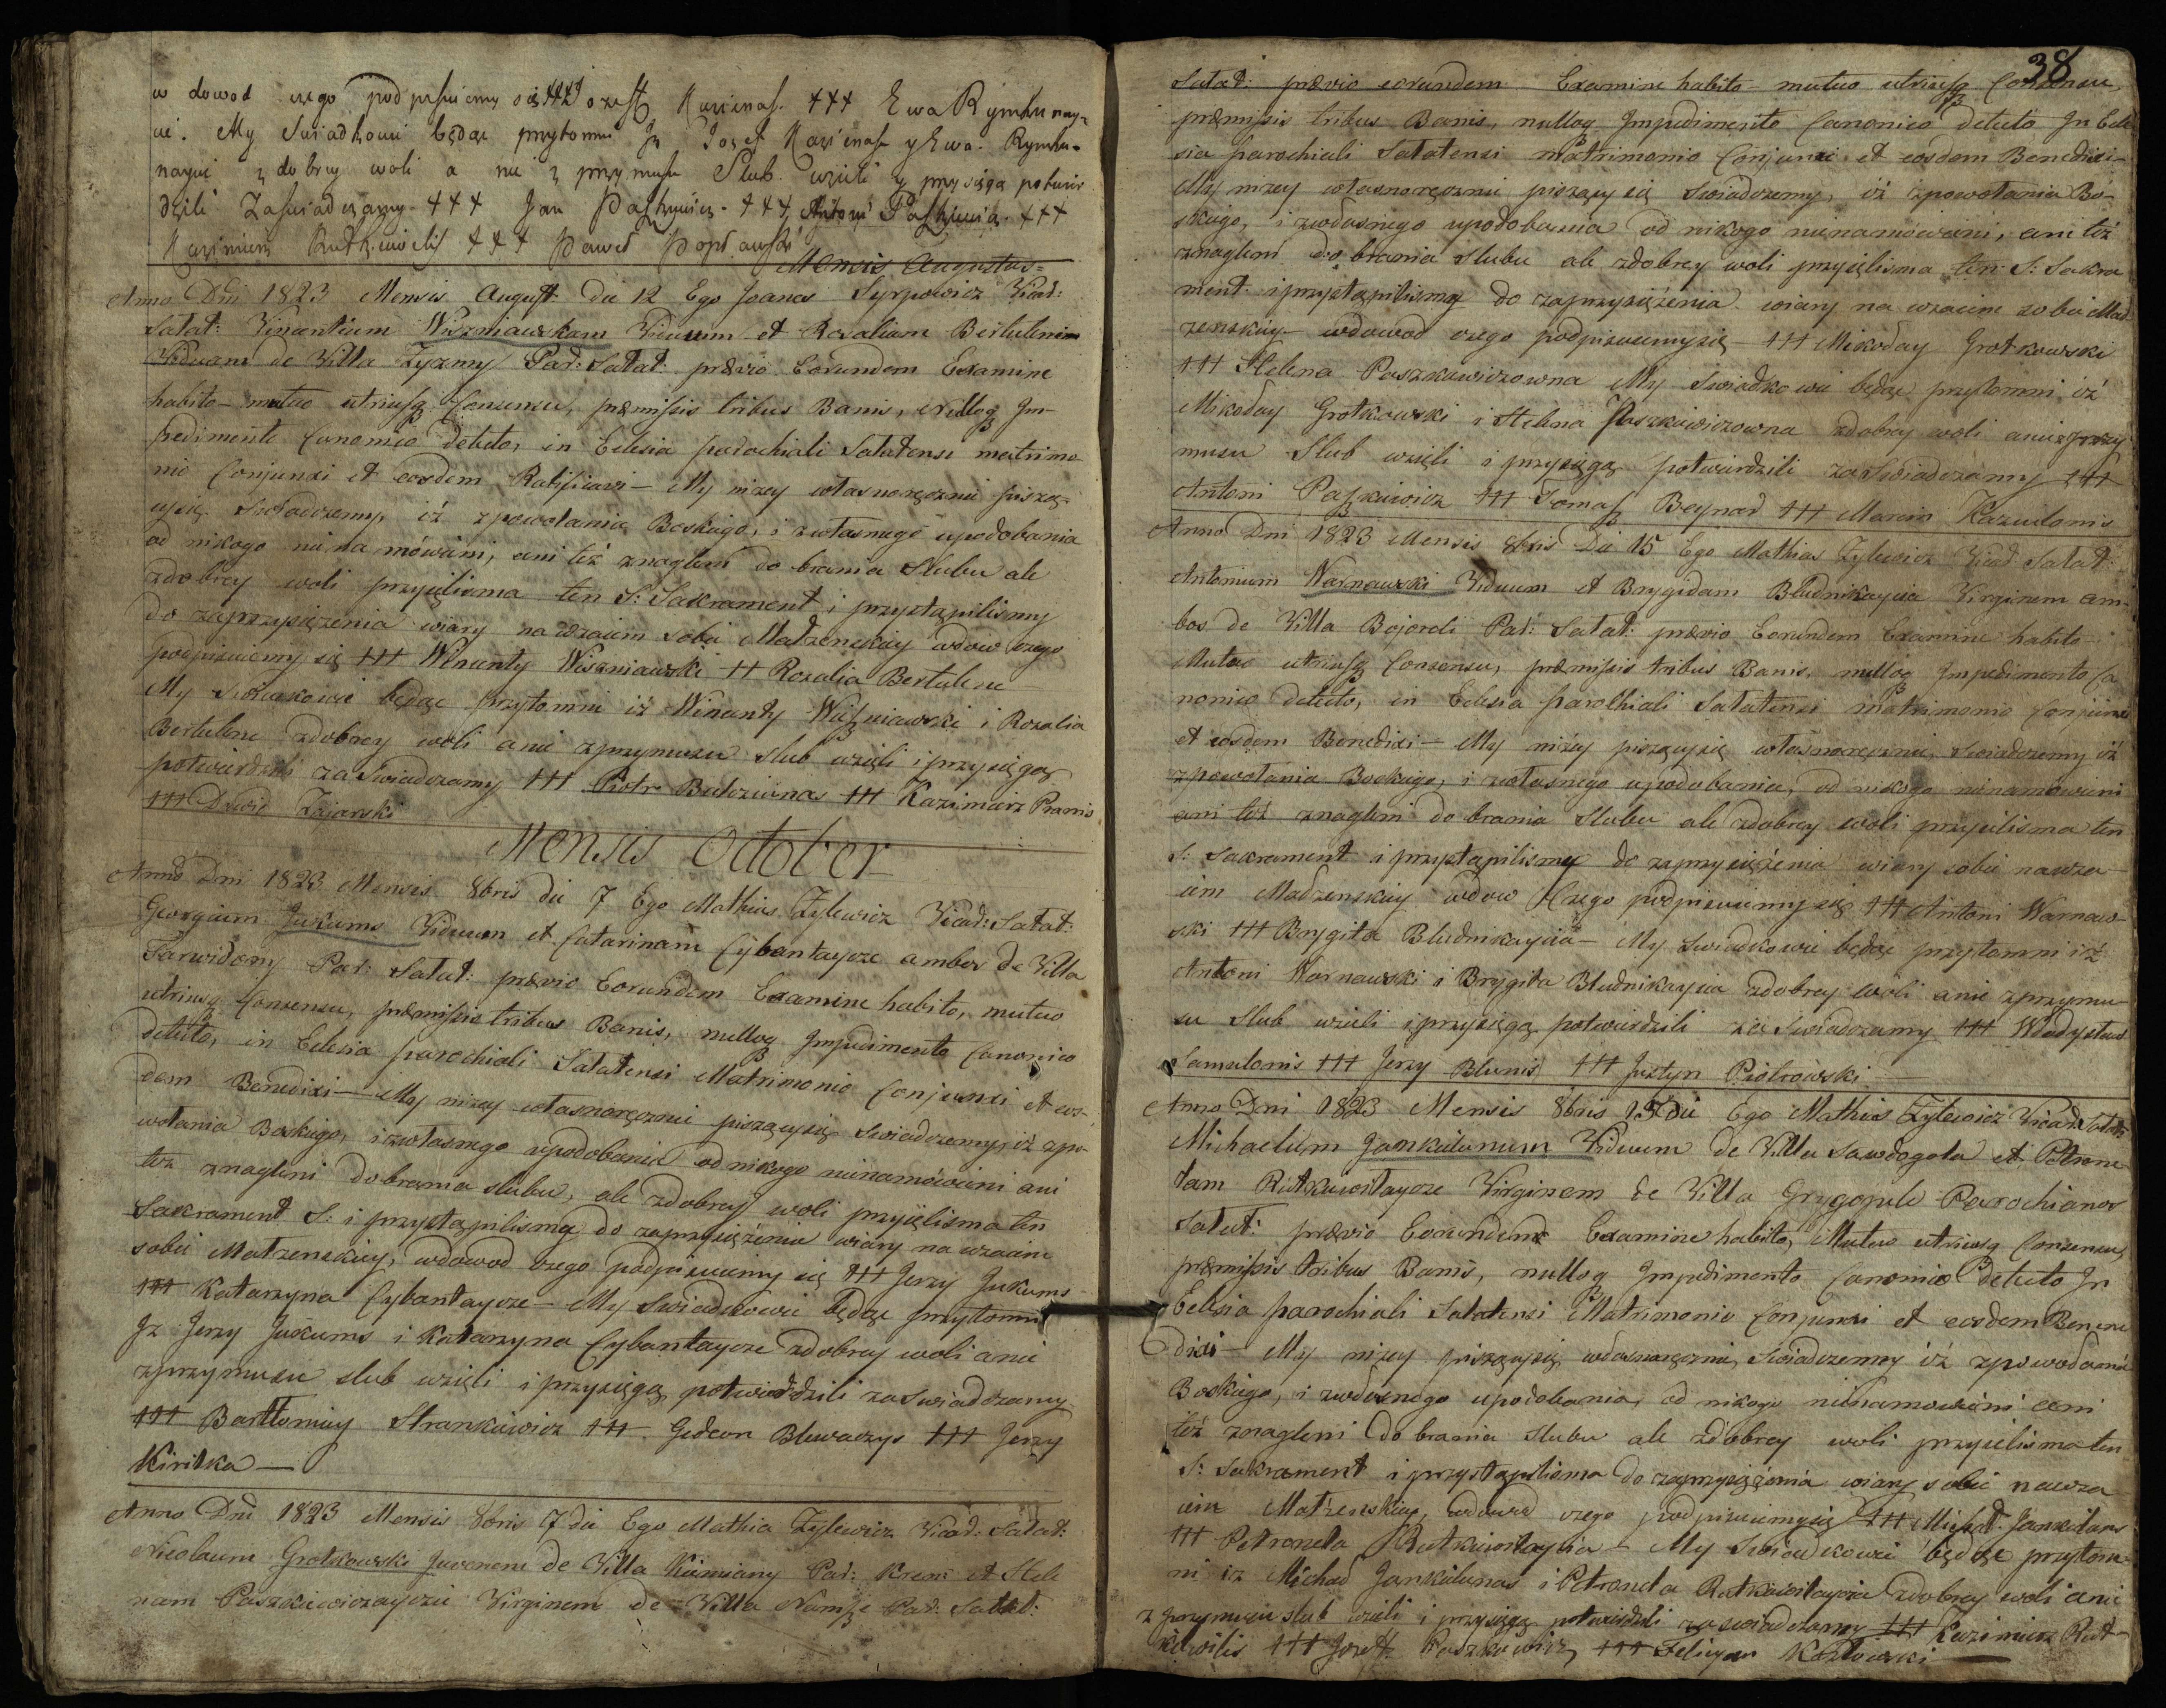 w dowod czego podpisuiemy się +++ Jozeff Kazienas. +++ Ewa Rymku nay-
cie. My Swiadkowie będąc przytomni Jz Jozef Kazienas y Ewa Rymku-
naycie z dobrey woli a nie z przymusu Slub wzieli y przysięgą potwier
dzili Zaswiadczamy. +++ Jan Paszkiewicz. +++ Antoni Paszkiewicz. +++
Kazimierz Rutkiewicz +++ Paweł Popławski
Mensis Augustus=
Anno Dni 1823 Mensis August: die 12 Ego Joanes Syrpowicz Vicar:
Salat: Vincentium Wiszniawskam Viduum et Rosaliam Bertulenie
Viduam de Villa Zyzmy Par: Salat: prævio Eorundem Examine
habito mutuo utriusq Consensu, præmissis tribus Banis, nulloq Jm-
pedimento Canonico detecto, in Eclesia parochiali Salatensi matrimo
nio Conjunxi et eosdem Ratificavi — My nizey własnoręcznie piszą-
cysię Swiadczemy, iż zpowołania Boskiego, i zwłasnego upodobania
od nikogo nie na mówieni, ani też znagleni do brania Slubu ale
zdobrey woli przyięlisma ten S: Sakrament i przystąpilismy
do zaprzysiężenia wiary na wzaiem sobie Matzenskiey wdow czego
podpisuiemy się +++ Wincenty Wiszniawski ++ Rozalia Bertulene
My Swiadkowie będąc przytomni iż Wincenty Wiszniawski i Rozalia
Bertulene zdobrey woli anie zprzymusu slub wzięli i przysięgą
potwierdzili zaSwiadczamy +++ Piotr Butkiunas +++ Kazimierz Pranis
+++ Dawid Zajarski
Mensis October
Anno Dni 1823 Mensis 8bris die 7 Ego Mathias Zylewicz Vicar: Salat:
Georgium Jukums Viduum et Catarinam Cybantaycze ambos de Villa
Tarwidomy Par: Salat: prævio Eorundem Examine habito, mutuo
utriusq Consensu, præmissis tribus Banis, nulloq Jmpedimento Canonico
detecto, in Eclesia parochiali Salatensi Matrimonio Conjunxi et eos-
dem Benedixi — My nizey własnoręcznie piszącysię Swiadczemy, iż zpo-
wołania Boskiego, i zwłasnego upodobania od nikogo nienamówieni ani
też znagleni dobrania slubu, ale zdobrey woli przyięlisma ten
Sakrament S: i przystąpilismy do zaprzysiężenia wiary na wzaiem
sobie Matzenskiey, wdowod czego podpisuiemy się +++ Jerzy Jukums
+++ Katarzyna Cybantaycze — My Swiadkowie będąc przytomni
Jz Jerzy Jukums i Katarzyna Cybantaycze zdobrey woli anie
zprzymusu slub wzięli i przysięgą potwierdzili zaswiadczamy
+++ Bartłomiey Strankiewicz +++ Gedeon Blewaczys +++ Jerzy
Kirilka —
Anno Dni 1823 Mensis 8bris 7 die Ego Mathia Zylewicz Vicar: Salat:
Nicolaum Grotkowski Juvenem de Villa Kiemiany Par: Krem: et Hele
nam Paszkiewiczayczie Virginem de Villa Namsze Par: Salat:
38
Salat: prævio eorundem Examine habito mutuo utriusq Consensu,
præmissis tribus Banis, nulloq Jmpedimento Canonico detecto Jn Ecle
sia parochiali Salatensi matrimonio Conjunxi et eosdem Benedixi—
My nizey własnoręcznie piszącysię Swiadczemy, iż zpowołania Bo-
skiego, i zwłasnego upodobania od nikogo nienamówieni, ani też
znagleni do brania slubu ale zdobrey woli przyięlisma ten S: Sakra
ment i przystąpilismy do zaprzysiężenia wiary na wzaiem sobie Mad
zenskiey wdowod czego podpisuiemysię — +++ Mikołay Grotkowski
+++ Helena Paszkiewiczowna My Swiadkowie będąc przytomni iż
Mikołay Grotkowski i Helena Paszkiewiczowna zdobrey woli aniezprzy
musu Slub wzięli i przysięgą potwierdzili zaSwiadczamy +++
Antoni Paszkiewicz +++ Tomasz Beynar +++ Marcin Kazeulonis
Anno Dni 1823 Mensis 8bris Die 15 Ego Mathias Zylewicz Vicar: Salat:
Antonium Warnawski Viduum et Brygidam Bludnikaycia Virginem am-
bos de Villa Bojoroli Par: Salat: prævio Eorundem Examine habito
Mutuo utriusq Consensu, præmissis tribus Banis, nulloq Jmpedimento Ca
nonico detecto, in Eclesia parochiali Salatensi matrimonio Conjunxi
et eosdem Benedixi — My niżey piszącysię własnoręcznie, Swiadczemy iż
zpowołania Boskiego, i zwłasnego upodobania, od nikogo nienamowieni
ani też znagleni do brania slubu ale zdobrey woli przyielisma ten
S: Sakrament i przystąpilismy do zaprzysiężenia wiary sobie nawza
iem Madzenskiey wdow Czego podpisuiemysię +++ Antoni Warnaw-
ski +++ Brygita Bludnikaycia — My Swiadkowie będąc przytomni iż
Antoni Warnawski i Brygita Bludnikaycia zdobrey woli anie zprzymu-
su slub wzieli i przysięgą potwierdzili zaSwiadczamy +++ Władysław
Samulonis +++ Jerzy Blunis +++ Justyn Piotrowski
Anno Dni 1823 Mensis 8bris 15 die Ego Mathias Zylewicz Vicar: Salat:
Michaelum Jankulunum Viduum de Villa Sawdogola et Petrone
lam Rutkiewitaycze Virginem de Villa Grygopule Parochianos
Salat: prævio Eorundem Examine habito, Mutuo utriusq Consensu,
præmissis tribus Banis, nulloq Jmpedimento Canonico detecto Jn
Eclesia parochiali Salatensi Matrimonio Conjunxi et eosdem Bene
dixi — My nizey piszącysię własnoręcznie, Swiadczemy iż zpowołania
Boskiego, i zwłasnego upodobania, od nikogo nienamowieni ani
też znagleni do brania slubu ale zdobrey woli przyielisma ten
S: Sakrament i przystąpilisma do zaprzysiężenia wiary sobie nawza
iem Matzenskiey, wdowod czego podpisuiemysię +++ Michał Jankulans
+++ Petronela Rutkiewitaycia — My Swiadkowie będąc przytom-
ni iz Michał Jankulunas i Petronela Rutkiewitaycia zdobrey woli anie
z przymusu slub wzieli i przysięgą potwierdzili zaswiadczamy +++ Kazimierz Rut-
kiewilis +++ Jozeff Paszkiewicz +++ Felicyan Kozłowski —